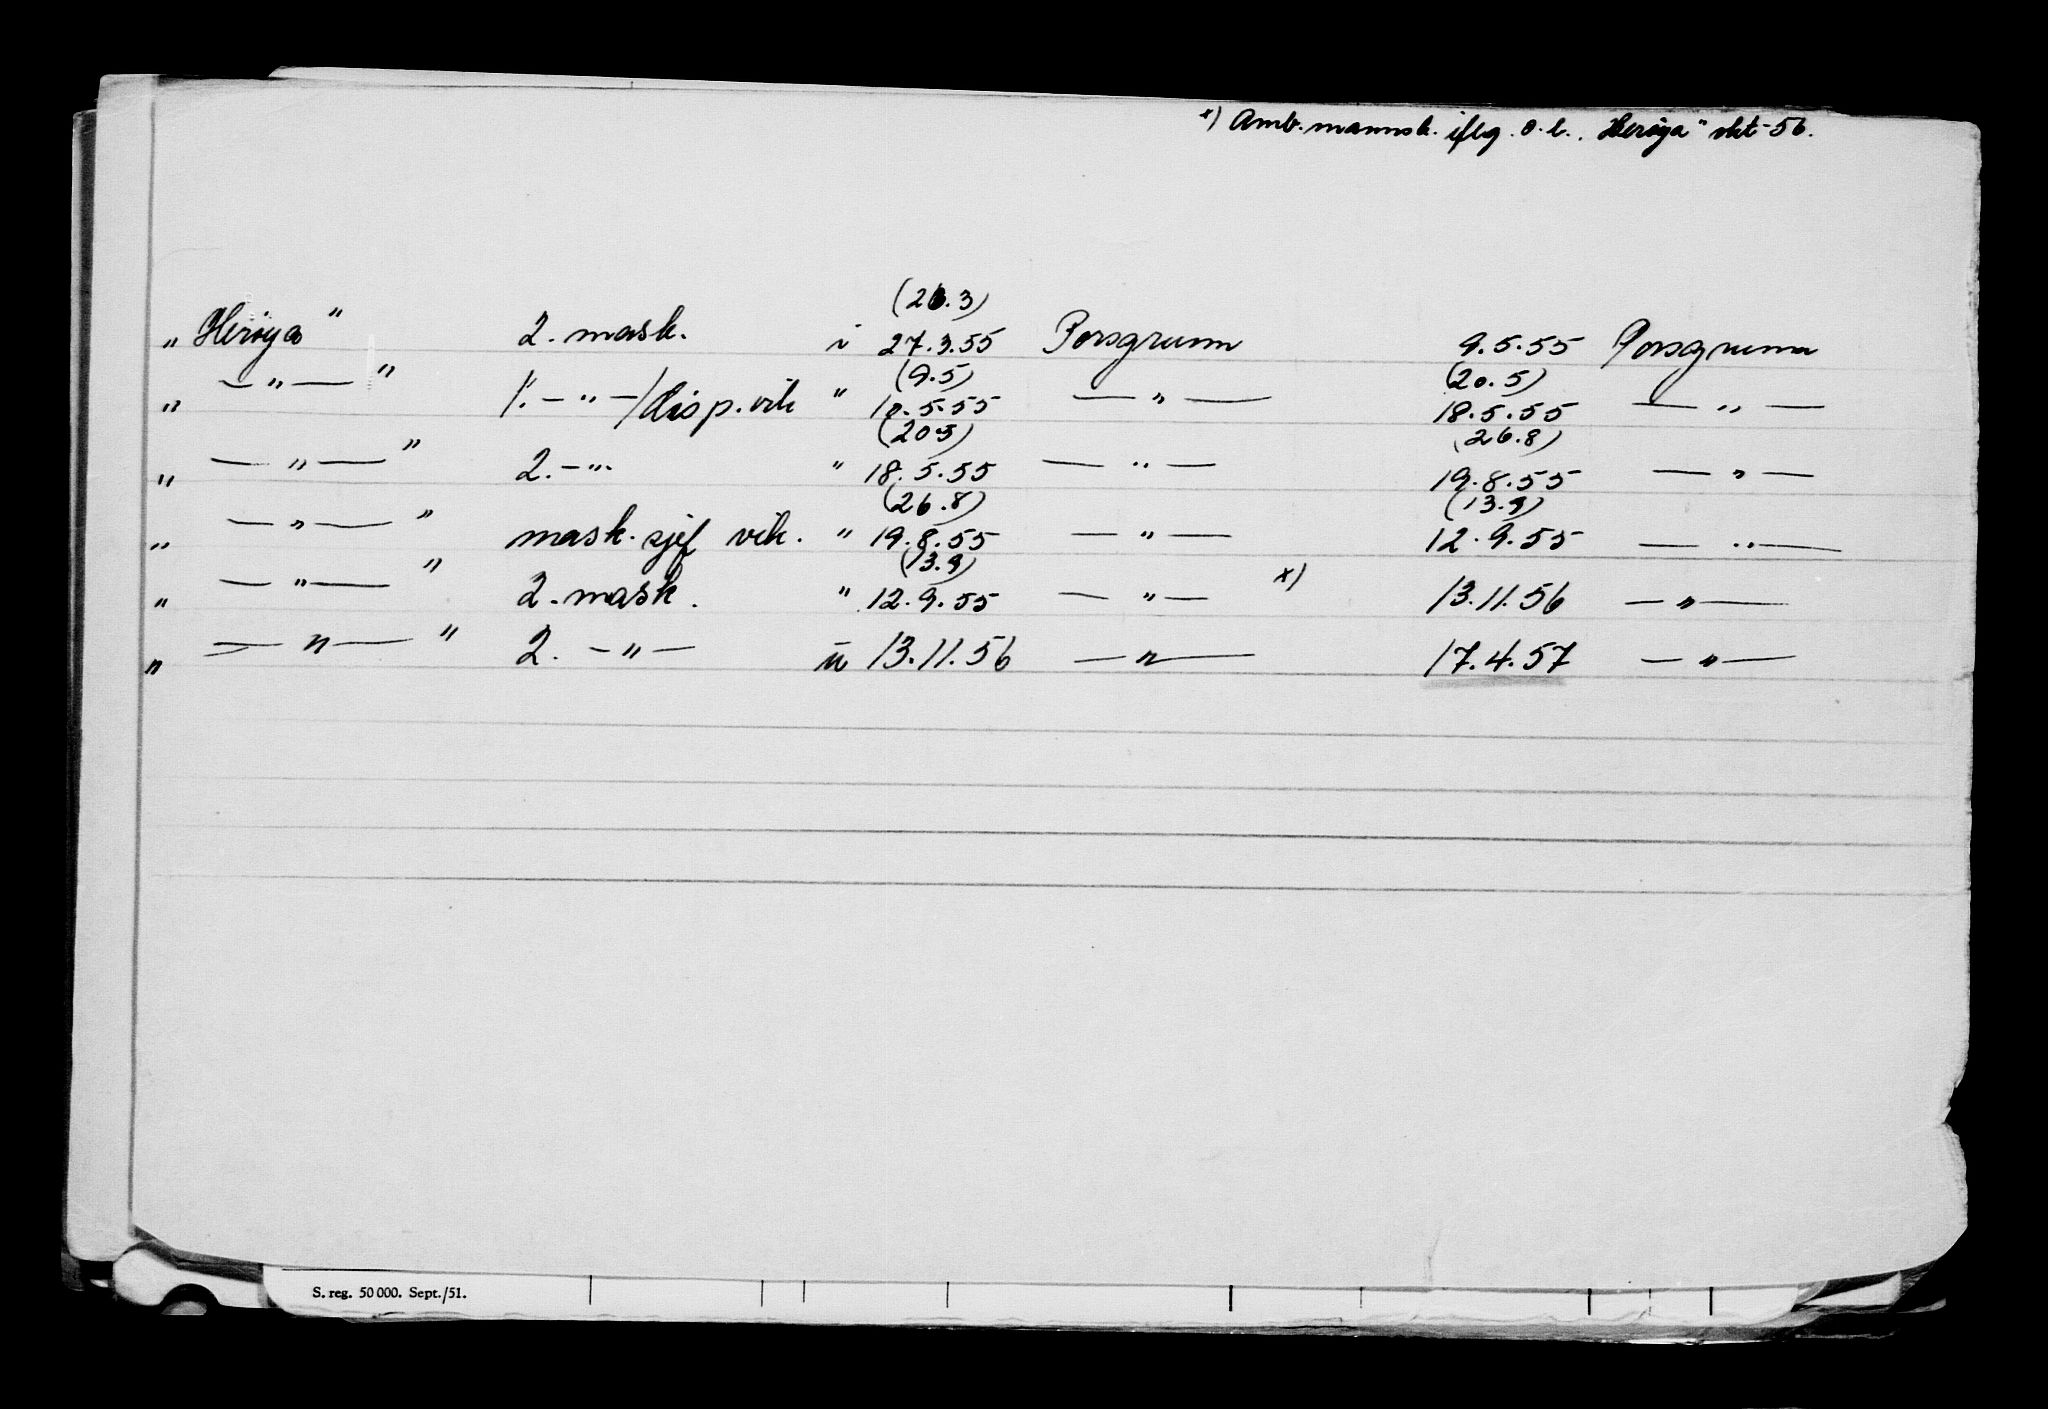 x) Amb. mannsk. iflg. o.l. „Herøya" okt-56.
(26.3)
„Herøya" 2. mask. i 27.3.55 Porsgrunn 9.5.55 Porsgrunn
(9.5) (20.5)
„ — " — " 1. — " — /disp. vik " 10.5.55 — " — 18.5.55 — " —
(20.5) (26.8)
„ — " — " 2. — " - " 18.5.55 — " — 19.8.55 — " —
(26.8) (13.9)
„ — " — " mask. sjef vik. " 19.8.55 — " — 12.9.55 — " —
(13.9)
„ — " — " 2. mask. " 12.9.55 — " — x) 13.11.56 — " —
„ — " — " 2. — " — u 13.11.56 — " — 17.4.57 — " —
S. reg. 50 000. Sept./51.